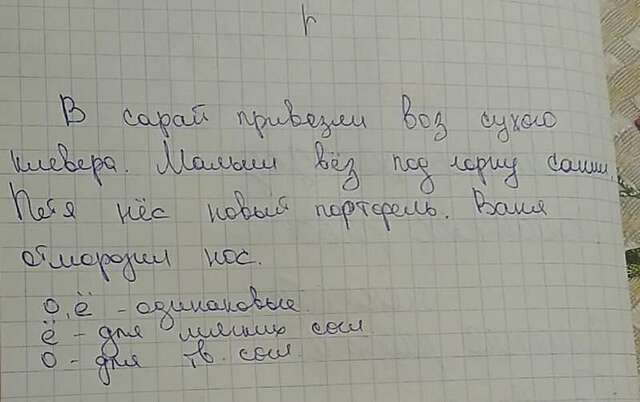 г
В сарай привезли воз сухого
клевера. Малыш вёз под горку санки.
Петя нёс новый портфель. Ваня
отморозил нос.
о, ё - одинаковые
ё - для мягких согл
о - для тв. согл.